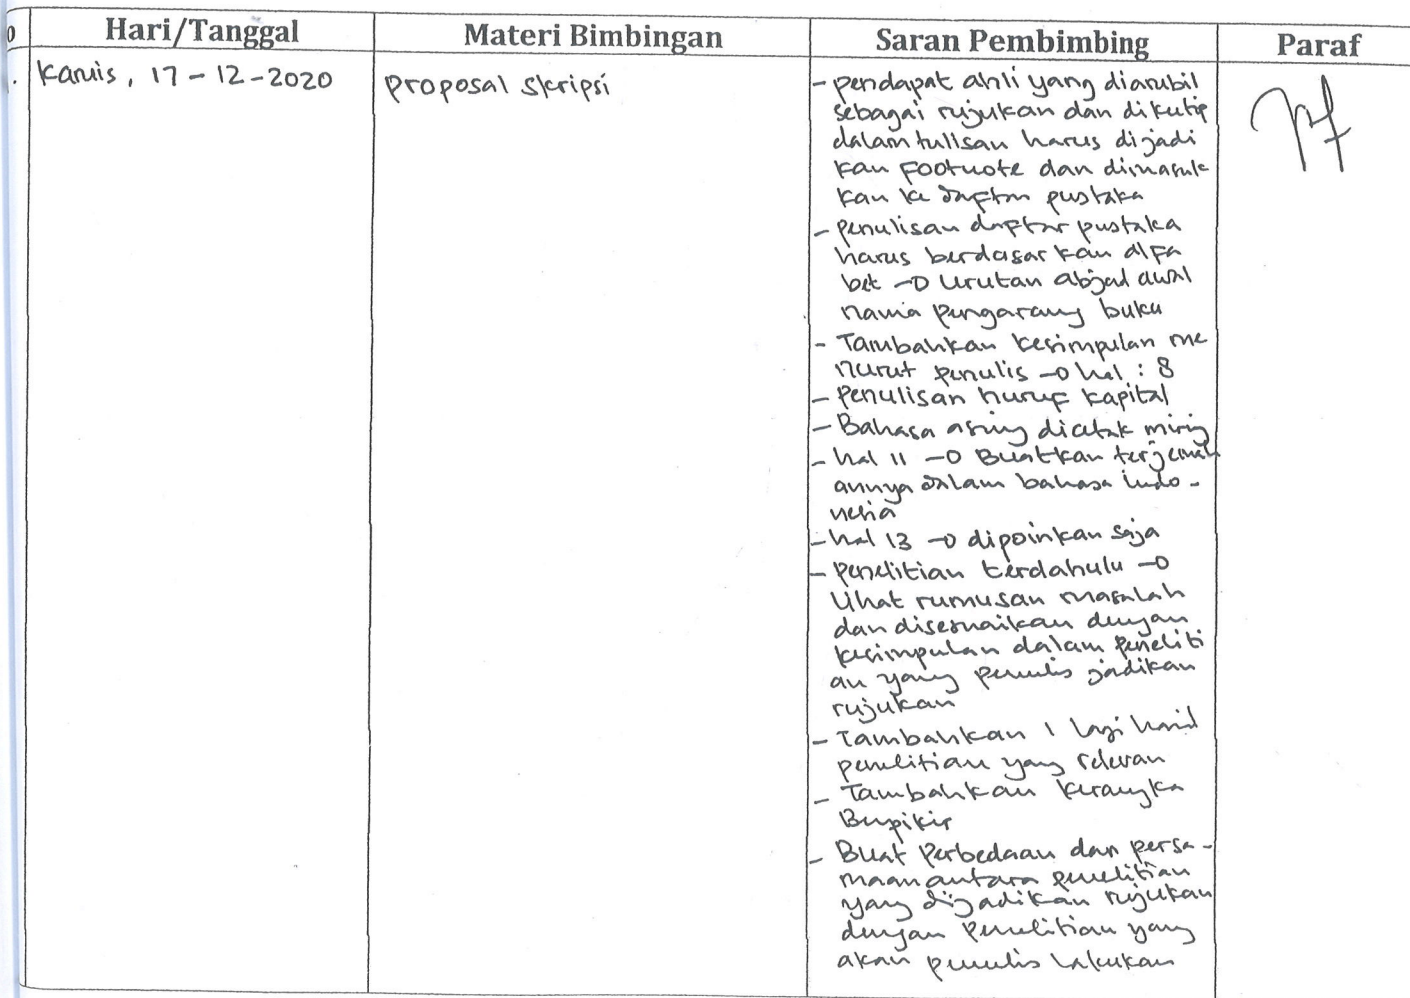 o
Hari/Tanggal
Materi Bimbingan
Saran Pembimbing
Paraf
.
Kamis, 17-12-2020
proposal skripsi
- pendapat ahli yang diambil
sebagai rujukan dan dikutip
dalam tulisan harus dijadi
kan footnote dan dimasuk
kan ke daftar pustaka
- penulisan daftar pustaka
harus berdasarkan alfa
bet → urutan abjad awal
nama pengarang buku
- Tambahkan kesimpulan me
nurut penulis → hal : 8
- penulisan huruf kapital
- Bahasa asing dicetak miring
- hal 11 → Buatkan terjemah
annya dalam bahasa indo-
nesia
- hal 13 → dipoinkan saja
- penelitian terdahulu →
lihat rumusan masalah
dan disesuaikan dengan
kesimpulan dalam peneliti
an yang penulis jadikan
rujukan
- Tambahkan 1 lagi hasil
penelitian yang relevan
- Tambahkan kerangka
Berpikir
- Buat perbedaan dan persa-
maan antara penelitian
yang dijadikan rujukan
dengan penelitian yang
akan penulis lakukan